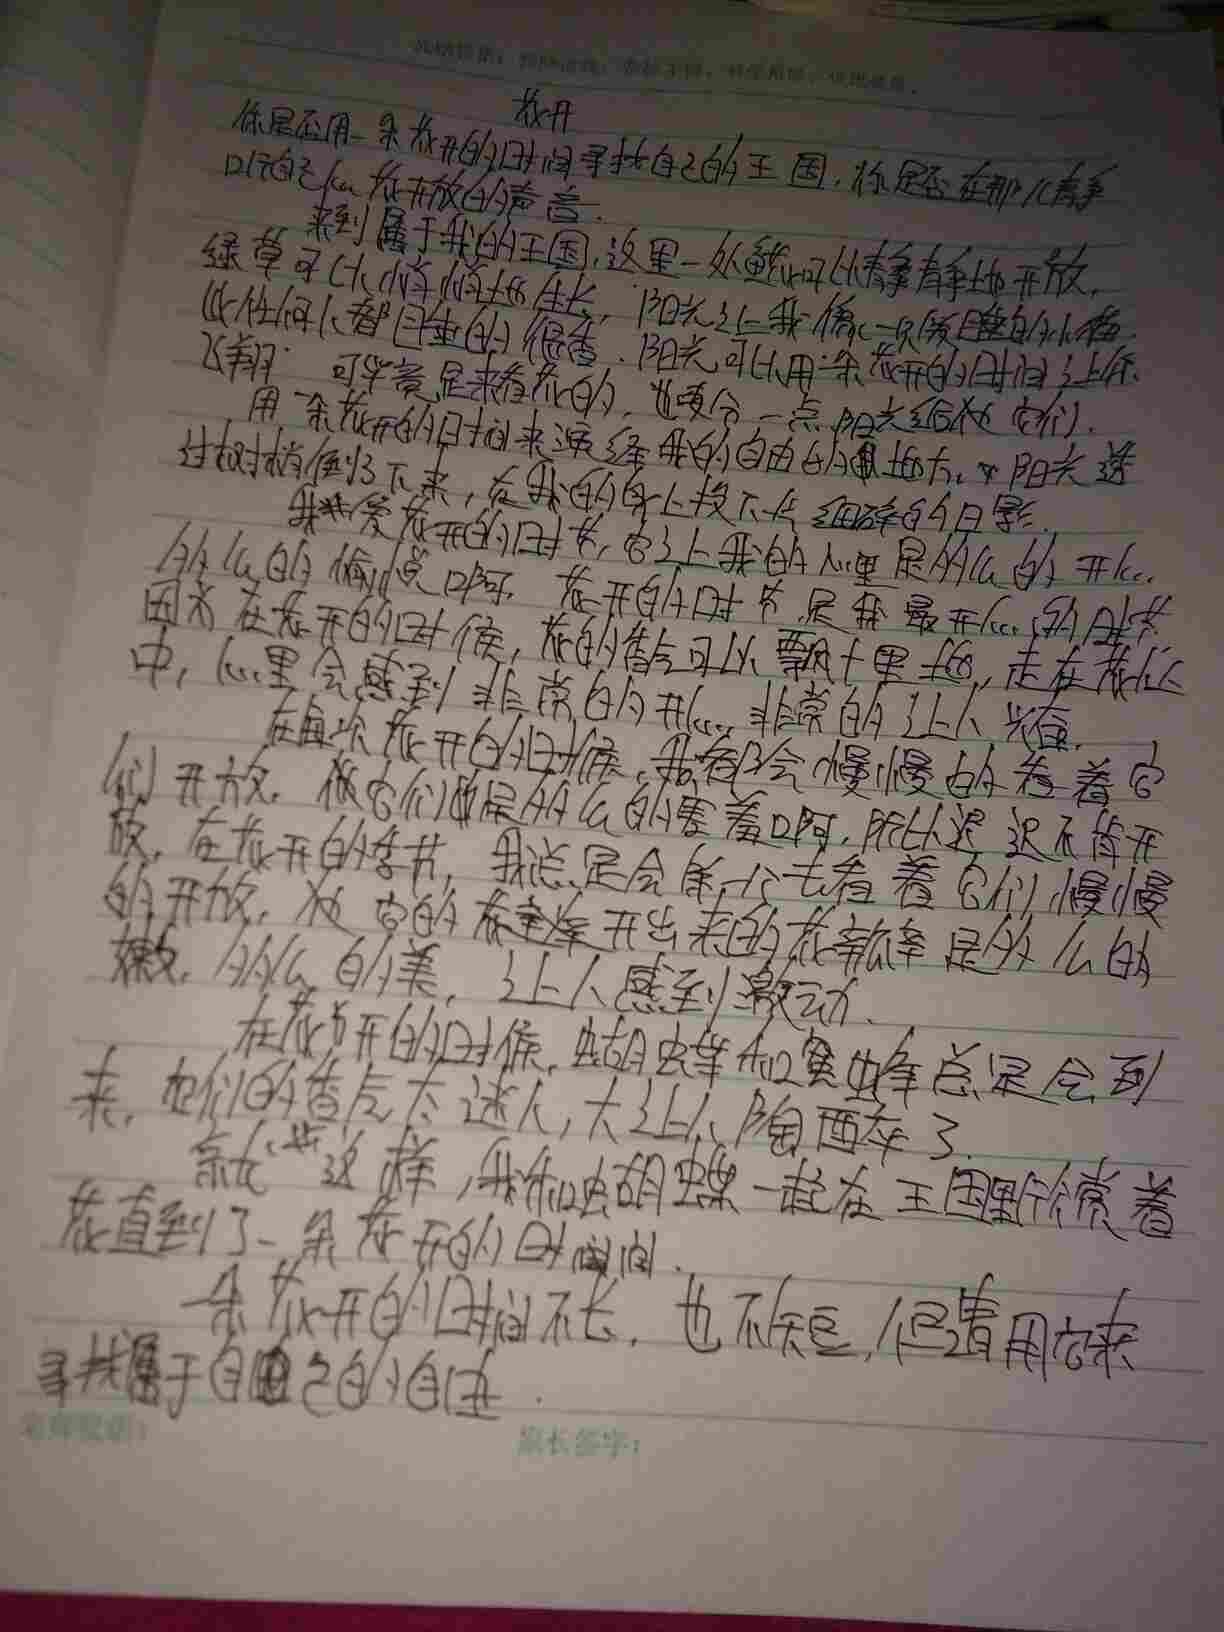 花开
你是否用一朵花开的时间寻找自己的王国,你是否在那儿静
听自己心花开放的声音.
来到属于我的王国,这里一处鲜花可以静静地开放,
绿草可以悄悄地生长,阳光让我像一只倦睡的小猫.
比任何人都睡的很香.阳光可以用一朵花开的时间让你
飞翔.可毕竟是来看花的,也要分一点阳光给它们.
用一朵花开的时间来演绎我的自由的地方.阳光透
过树梢倾泻下来,在我的身上投下片片细碎的日影.
我爱花开的时节,它让我的心里是多么的开心.
多么的愉悦啊,花开的时节,是我最开心的时节
因为在花开的时候,花的香会可以飘十里地,走在花丛
中,心里会感到非常的开心,非常的让人兴奋.
在每次花开的时候,我都会慢慢的看着它
们开放,像它们也是多么的害羞啊,所以迟迟不肯开
放,在花开的季节,我总是会第一个去看着它们慢慢
的开放,它的花蕾开出来的花瓣是多么的
嫩,多么的美,让人感到激动.
在花开的时候,蝴蝶和蜜蜂总是会到
来,它们的香气太迷人,太让人陶醉了.
就这样,我和蝴蝶一起在王国里欣赏着
花直到了一朵花开的时间.
一朵花开的时间不长,也不短,但请用它来
寻找属于自己的自由.
老师寄语:
家长签字: